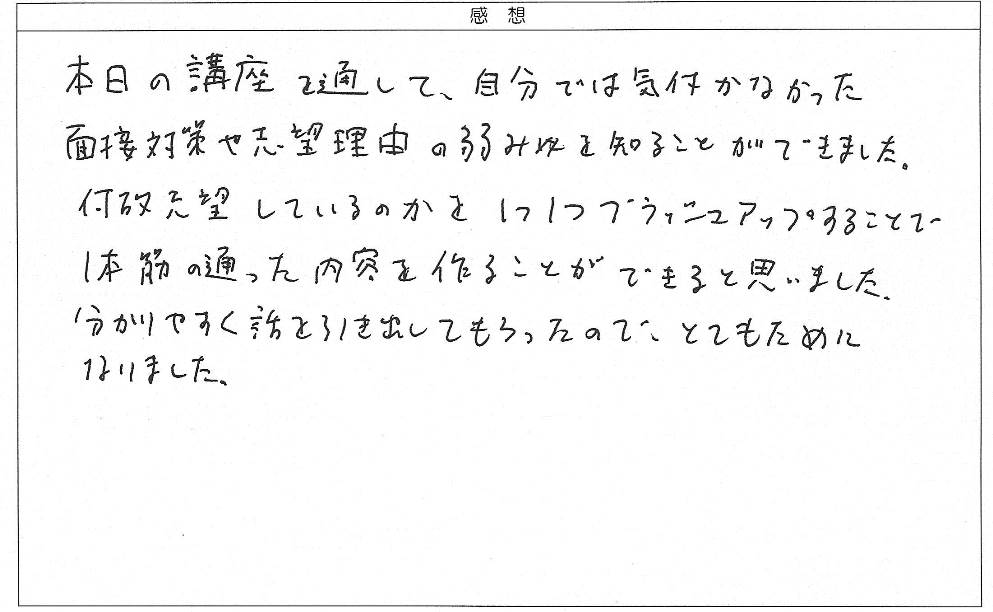 感想
本日の講座を通して、自分では気付かなかった
面接対策や志望理由の弱みを知ることができました。
何故志望しているのかを1つ1つブラッシュアップすることで
1本筋の通った内容を作ることができると思いました。
分かりやすく話を引き出してもらったので、とてもために
なりました。